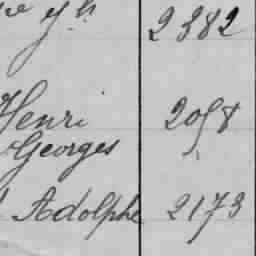 2382
Henri 2058
Georges
Adolphe 2173